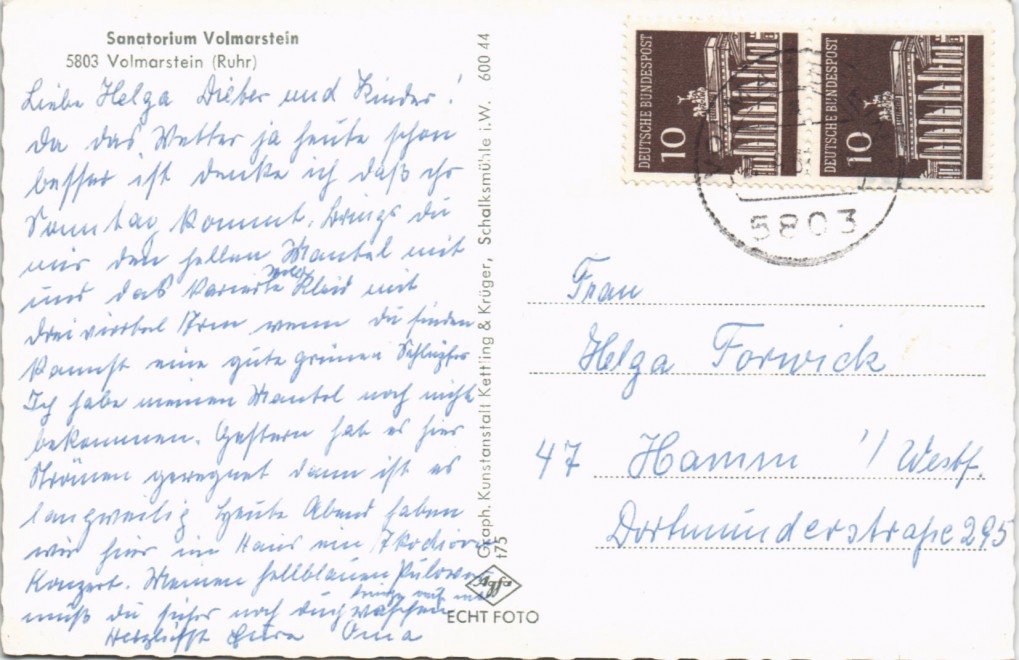 Sanatorium Volmarstein
5803 Volmarstein (Ruhr)
Liebe Helga Dieter und Kinder!
Da das Wetter ja heute schon
besser ist denke ich daß ihr
Sonntag kommt, brings du
mir den hellen Mantel mit
und das karierte Kleid mit
dreiviertel Arm wenn du finden
kannst eine gute grünen Schlüpfer
Ich habe meinen Mantel noch nicht
bekommen. Gestern hat es hier
Strömen geregnet dann ist es
langweilig Heute Abend haben
wir hier im Haus ein Akodion
Konzert. Meinen hellblauen Pulover
bringe mit
mußt du sicher noch durchwaschen
Herzlichst Eure Oma
Graph. Kunstanstalt Kettling & Krüger, Schalksmühle i.W. 600 44
t75
Agfa
ECHT FOTO
DEUTSCHE BUNDESPOST
10
DEUTSCHE BUNDESPOST
10
5803
Frau
Helga Forwick
47 Hamm i/Westf.
Dortmunderstraße 295